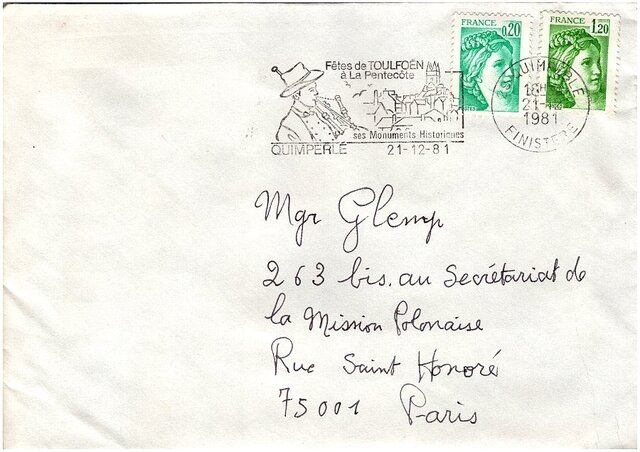 FRANCE
0,20
FRANCE
1,20
Fêtes de TOULFOËN
à La Pentecôte
ses Monuments Historiques
QUIMPERLÉ 21-12-81
QUIMPERLE
18H
21-12
1981
FINISTERE
Mgr Glemp
263 bis. au Secrétariat de
la Mission Polonaise
Rue Saint Honoré
75001 Paris